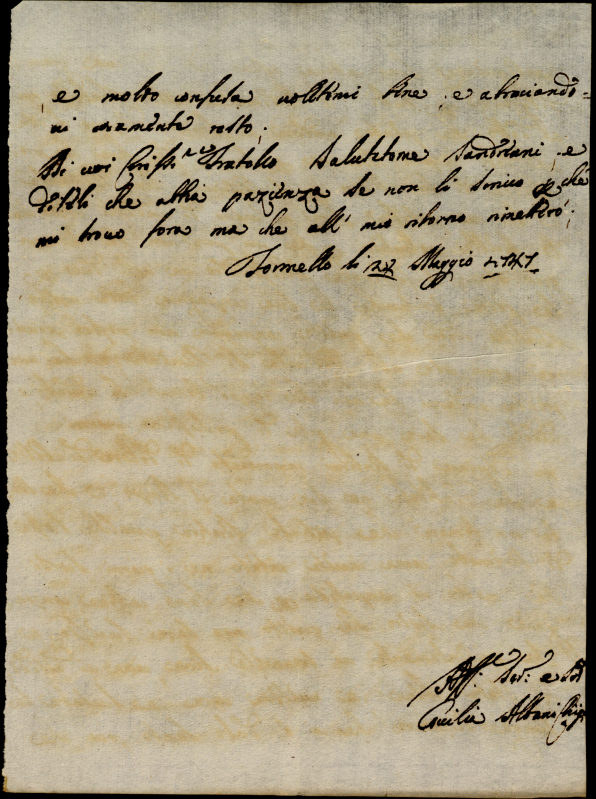 e molto confusa voletemi bene, e abraciando=
vi caramente resto;
Di voi Cariss.º Fratello Salutateme Sandriani, e
diteli che abbia pazienza se non li scrivo p che
mi trovo fora ma che all' mio ritorno rimetterò;
Formello li 27 Maggio
Aff: Ser: e
Cecilia Albani Chigi